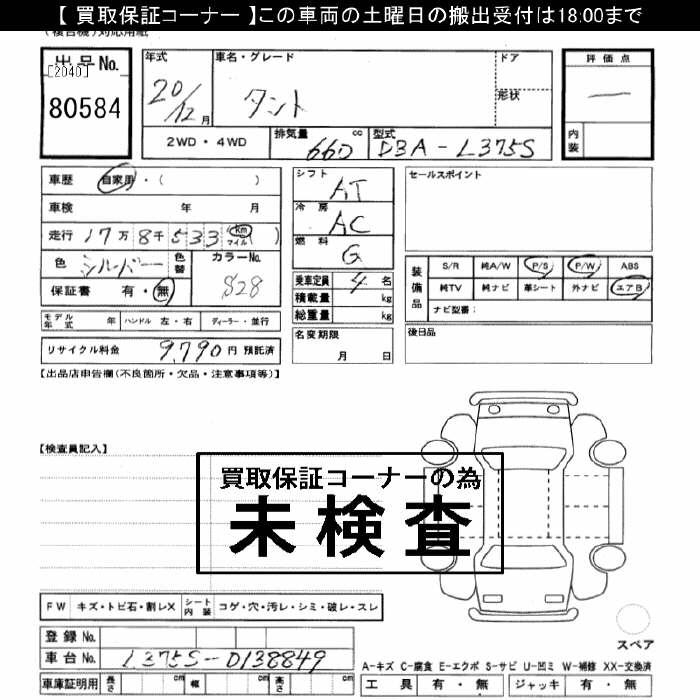 【 買取保証コーナー 】この車両の土曜日の搬出受付は18:00まで
(複合機)対応用紙
出品No.
[2040]
80584
年式
20/12月
車名・グレード
タント
ドア
形状
評価点
―
内装
2WD・4WD
排気量 660 cc
型式 DBA-L375S
車歴 自家用・( )
車検 年 月
走行 17万8千533 Km マイル ( )
色 シルバー
色替
カラーNo. S28
保証書 有・無
モデル年式 年 ハンドル 左・右 ディーラー・並行
リサイクル料金 9,790円 預託済
シフト AT
冷房 AC
燃料 G
乗車定員 4 名
積載量 kg
総重量 kg
名変期限
月 日
セールスポイント
装備品
S/R 純A/W P/S P/W ABS
純TV 純ナビ 革シート 外ナビ エアB
ナビ型番：
後日品
【出品店申告欄(不良箇所・欠品・注意事項等)】
【検査員記入】
買取保証コーナーの為
未検査
FW キズ・トビ石・割レX シート内装 コゲ・穴・汚レ・シミ・破レ・スレ
登録No.
車台No. L375S-0138849
車庫証明用 長さ cm 幅 cm 高さ cm
スペア
A-キズ C-腐食 E-エクボ S-サビ U-凹ミ W-補修 XX-交換済
工具 有・無 ジャッキ 有・無